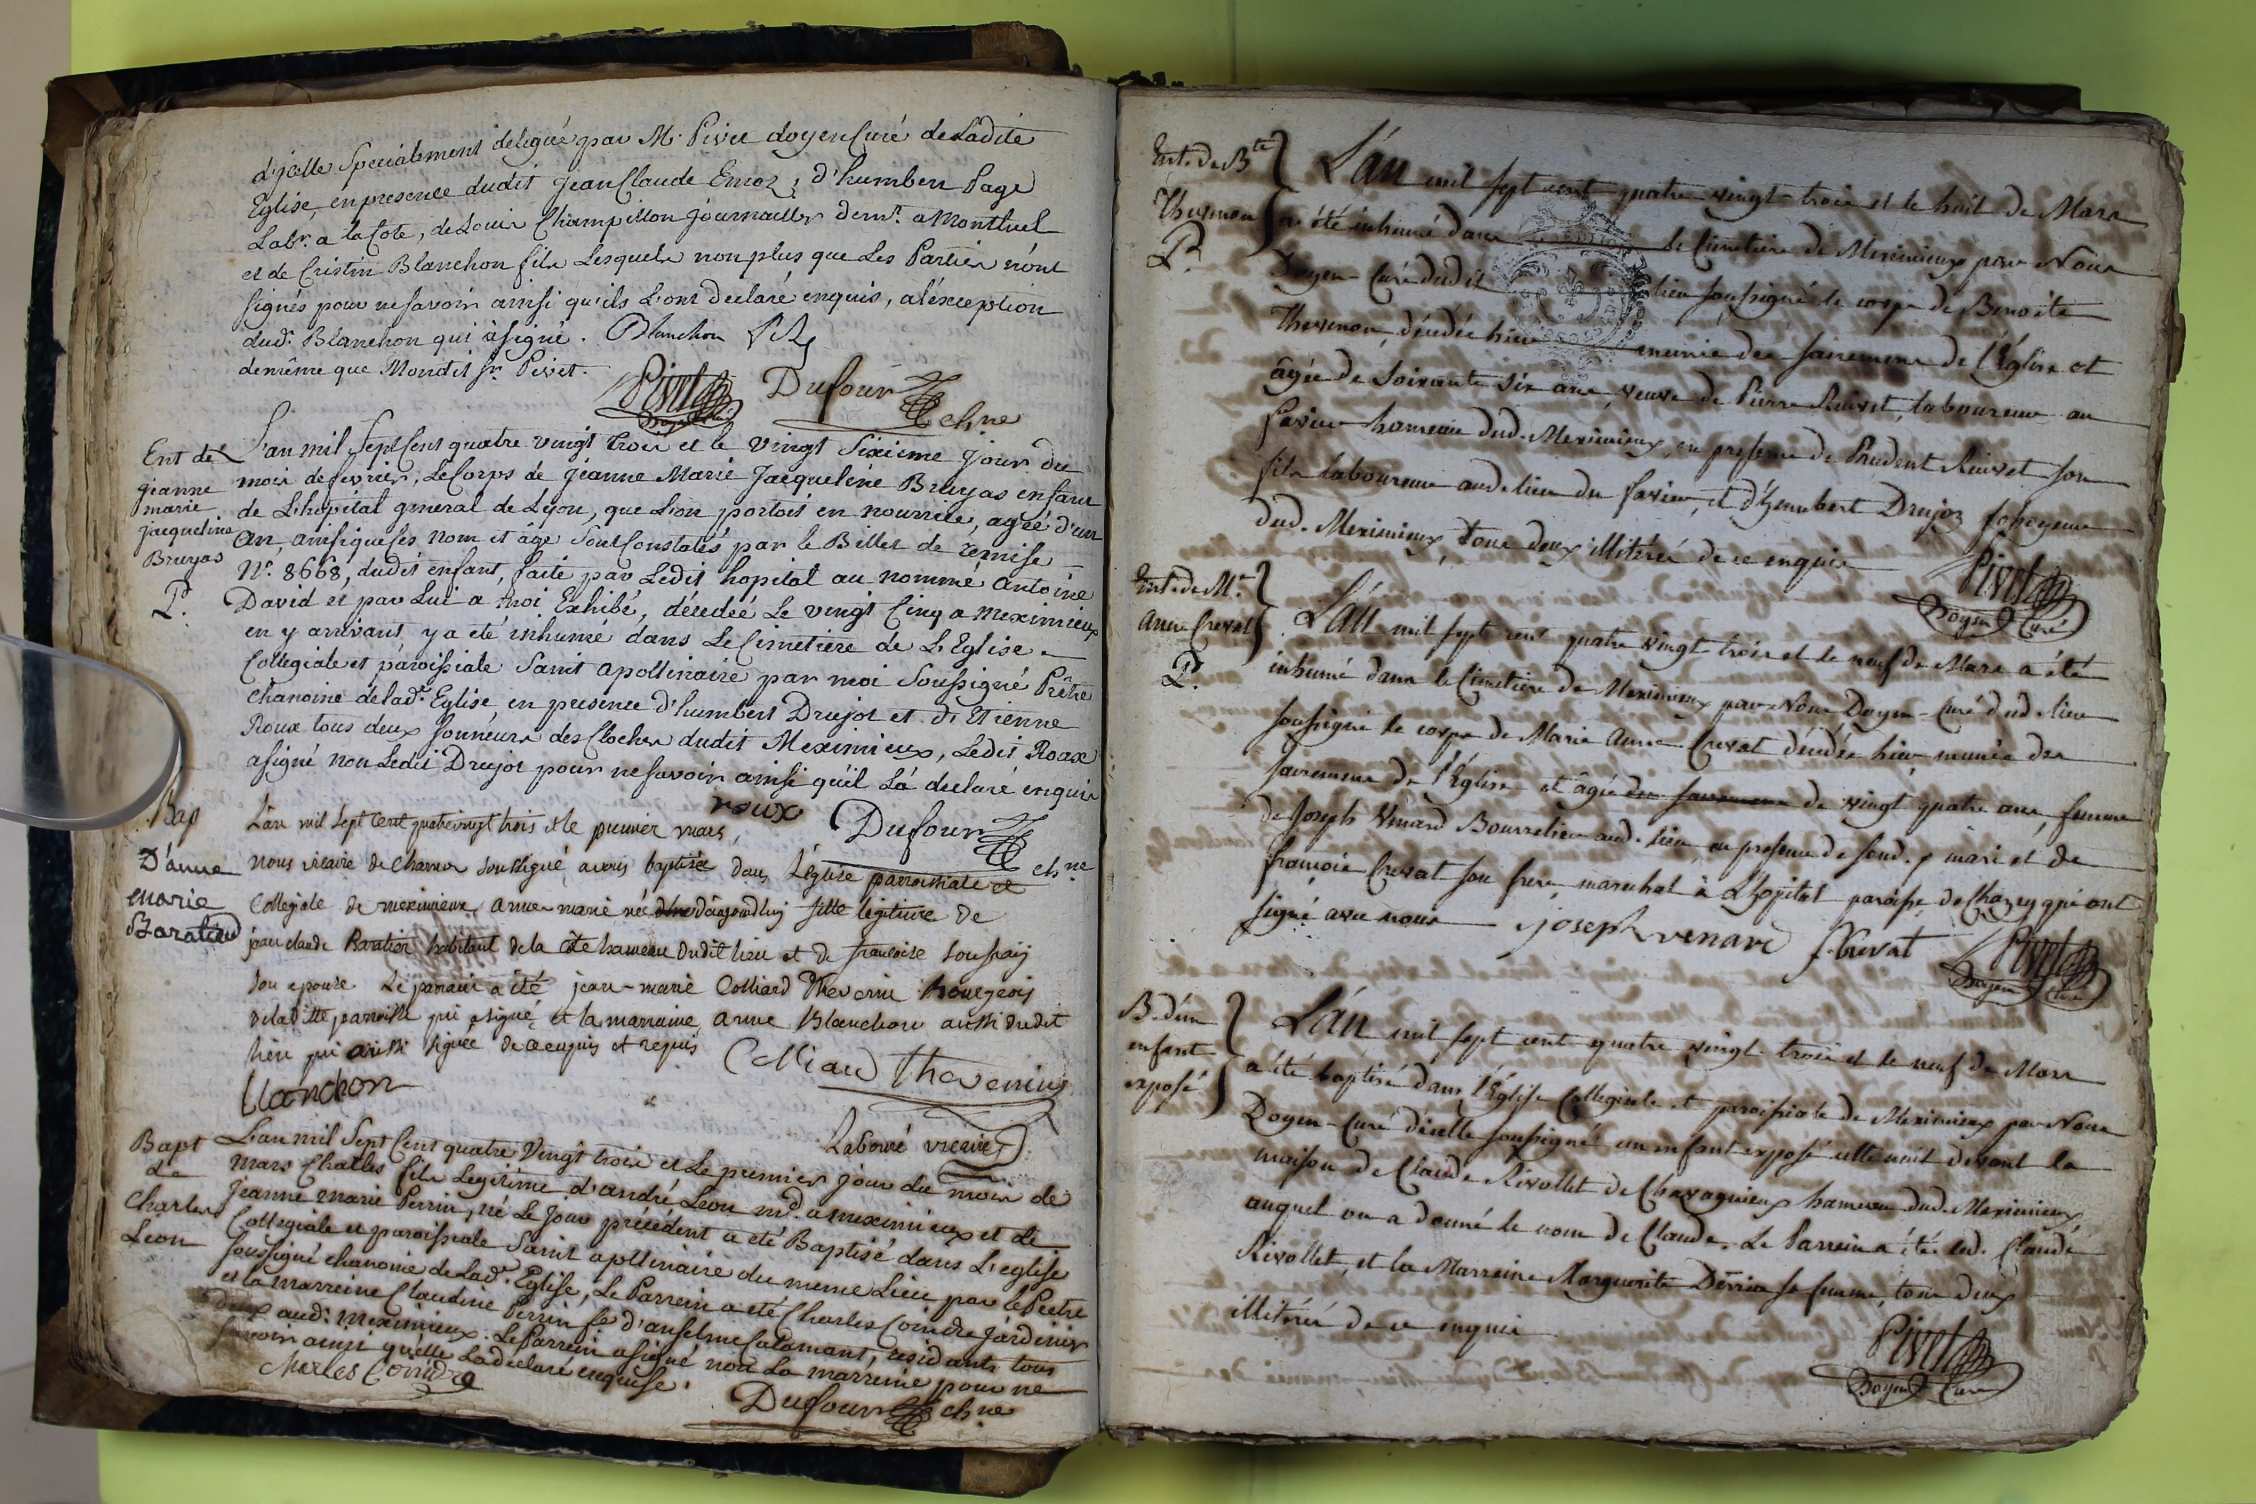 d'jcelle Specialement delegué par Mr. Pivet doyen Curé de Ladite
Eglise, en presence dudit Jean Claude Emoz, d'humbert Page
Labr. a la Cote, de Louis Champillon journaillier demt. a Montluel
et de Cristin Blanchon fils Lesquels non plus que Les Parties n'ont
signés pour ne savoir ainsi qu'ils L'ont declaré enquis, a l'exception
dudt. Blanchon qui à signé. Blanchon
de même que Mondit Sr. Pivet.
Pivet Dufour chne
Doyen Curé
Ent de
jeanne
marie
jacqueline
Bruyas
P.
L'an mil Sept Cent quatre vingt trois et le vingt Sixieme jour du
mois de fevrier, Le Corps de jeanne Marie Jacqueline Bruyas enfant
de L'hopital general de Lyon, que L'on portoit en nourrice, agée d'un
an, ainsi que Les nom et âge Sont Constatés par le Billet de remise
N°. 8668, dudit enfant, faite par Ledit hopital au nommé antoine
David et par Lui a moi Exhibé, décedée Le vingt Cinq a meximieux
en y arrivant y a eté inhumé dans Le Cimetiere de L'Eglise
Collegiale et paroissiale Saint apollinaire par moi Soussigné Prêtre
Chanoine de lade. Eglise en presence d'humbert Drujot et d'Etienne
Roux tous deux Sonneurs des Cloches dudit Meximieux, Ledit Roux
a signé non Ledit Drujot pour ne savoir ainsi qu'il L'a declaré enquis
roux Dufour chne
Bap
D'anne
marie
Baratier
L'an mil sept cent quatrevingt trois et le premier mars,
nous vicaire de Charnoz soussigné avons baptisée dans L'église parroissiale et
Collegiale de meximieux anne-marie née d'aujourdhuy fille legitime de
jean claude Baratier habitant de la côte hameau dudit lieu et de francoise
son epouse. Le parrain a été jean-marie Colliard Thevenin bourgeois
de laditte parroisse qui a signé, et la marraine anne Blanchon aussi dudit
lieu qui aussi signée de ce enquis et requis
Colliard Thevenin
blanchon
Laboré vicaire
Bapt
de
Charles
Leon
L'an mil Sept Cent quatre Vingt trois et Le premier jour du mois de
mars Charles fils Legitime d'andré Leon md. a meximieux et de
Jeanne marie Perrin, né Le jour précédent a eté Baptisé dans L'eglise
Collegiale et paroissiale Saint apollinaire du meme Lieu par le Prêtre
soussigné chanoine de Lade. Eglise, Le Parrein a eté Charles Coindre jardinier
et la marreine Claudine Perrin fe. d'anselme Calamant, residants tous
deux audt. meximieux. Le Parrein a signé non La marreine pour ne
savoir ainsi qu'elle La declaré enquise.
Charles Coindre
Dufour chne
Ent. de Bte
Thevenon
P.
L'an mil sept cent quatre vingt trois et le huit de Mars
a été inhumé dans le Cimetiere de Meximieux par Nous
Doyen-Curé dudit lieu soussigné le corps de Benoite
Thevenon, décédée hier munie des sacremens de l'Église et
âgée de soixante six ans, veuve de Pierre Ruivet, laboureur au
favier hameau dud. Meximieux, en presence de Prudent Ruivet son
fils laboureur aud. lieu du favier, et d'humbert Drujoz fossoyeur
dud. Meximieux, tous deux illitérés de ce enquis
Pivet
Doyen Curé
Ent. de Me.
Anne Crevat
P.
L'an mil sept cent quatre vingt trois et le neuf de Mars a été
inhumé dans le Cimetiere de Meximieux par Nous Doyen-Curé dud. lieu
soussigné le corps de Marie Anne Crevat décédée hier munie des
sacremens de l'Église et âgée des sacremens de vingt quatre ans, femme
de Joseph Venard Bourrelier aud. lieu, en presence de sond. mari et de
francois Crevat son frere, marechal à L'hopital paroisse de Chazey qui ont
signé avec nous joseph venard f. Crevat
Pivet
Doyen Curé
B. d'un
enfant
exposé
L'an mil sept cent quatre vingt trois et le neuf de Mars
a été baptisé dans l'Église Collegiale et paroissiale de Meximieux par Nous
Doyen-Curé d'icelle soussigné un enfant exposé cette nuit devant la
maison de Claude Rivollet de Chavagnieux hameau dud. Meximieux
auquel on a donné le nom de Claude. Le Parrein a été led. Claude
Rivollet, et la Marreine Marguerite Derrias sa femme, tous deux
illitérés de ce enquis
Pivet
Doyen Curé